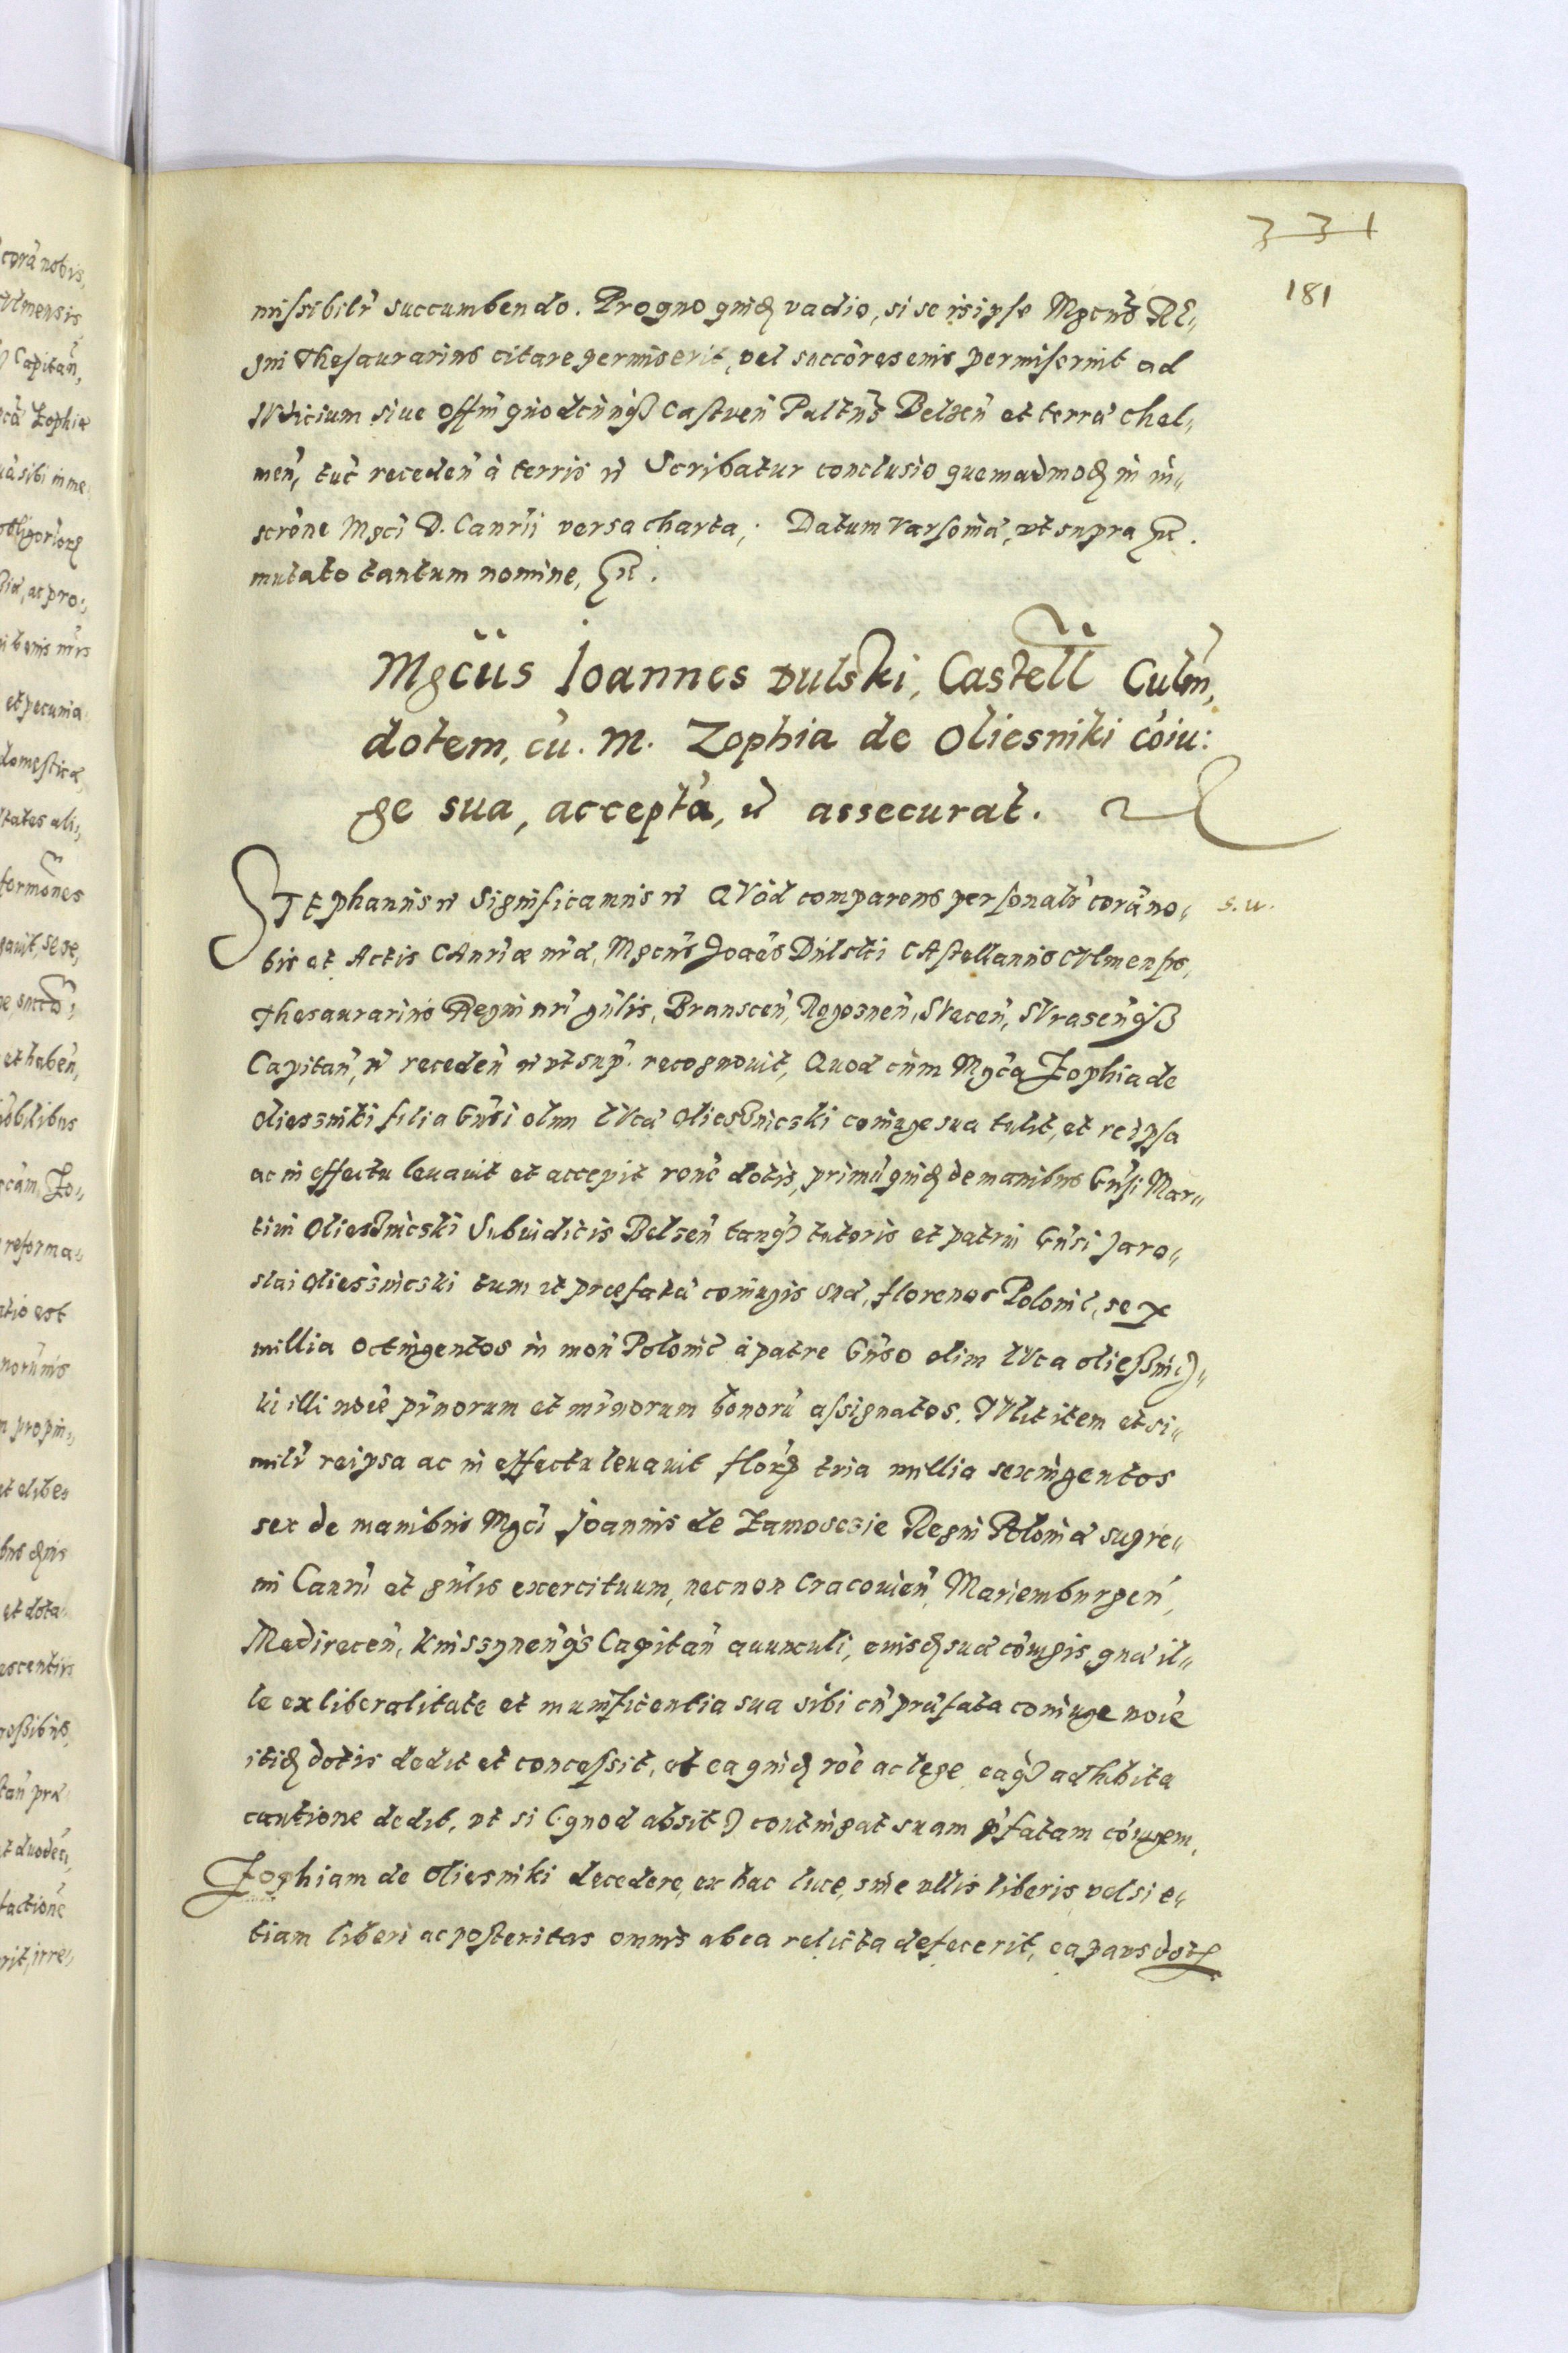 331
181
missibilr̃ succumbendo. Pro quo quidẽ vadio, si se is ipse Mgcus RE„
gni Thesaurarius citare permiserit, vel succõres eius permiserint ad
IVdicium siue offm̃ quodcunq̃ʒ Castren̄ Paltñs Belzen̄ et terræ Chel„
men̄, tũc receden̄ à terris rc̃ Scribatur conclusio quemadmodũ in in„
scrõne Mgci D. Canrii versa charta, Datum Varsouiæ, vt supra ꝛc̃.
mutato tantum nomine, ꝛc̃.
Mgcũs Joannes Dulski, Castell Culm̃,
dotem, cũ. M. Zophia de Oliesniki cõiu:
ge sua, acceptã, rc̃ assecurat.
STEphanus rc̃ Significamus rc̃ QVòd comparens personalr̃ corã no„
s. u.
bis et Actis CAnriæ nræ, Mgcus Joaẽs Dulski CAstellanus CVlmensis,
Thesaurarius Regni nri gñlis, Branscen̄, Rogosnen̄, SVecen̄, SVrasen̄qʒ
Capitan̄, rc̃ receden̄ rc̃ vt sup. recognouit, Quod cum Mgca Zophia de
Oliesniki filia Gñsi olim LVcæ Oliesnicski coniuge sua tulit, et reipsa
ac in effectu leuauit et accepit ronẽ dotis, primũ quidẽ de manibus Gñsi Mar„
tini Oliesnicski Subiudicis Belzen̄ tanqʒ tutoris et patrui Gñsi Jaro„
slai Oliesnicski tum et præfatæ coniugis suæ, florenos Polonic̃, sex
millia octingentos in mon̄ Polonic̃ à patre Gñso olim LVca Oliesnics„
ki illi noĩe pr̃norum et mr̃norum bonorũ assignatos. TVlit item et si„
milr̃ reipsa ac in effectu leuauit flor̃ tria millia sexingentos
sex de manibus Mgci Joannis de Zamoscie Regni Poloniæ supre„
mi Canrii et gñlis exercituum, necnon Cracouien̄, Mariemburgen̄,
Medirecen̄, Knissynen̄qʒ Capitan̄ auunculi, eiusdẽ suæ cõiugis, quæ il„
le ex liberalitate et munificentia sua sibi cũ præfata coniuge noĩe
itidẽ dotis dedit et concessit, et ea quidẽ rõe ac lege eaqʒ adhibita
cautione dedit, vt si (quod absit) contingat suam p̃fatam cõiugem,
Zophiam de Oliesniki decedere, ex hac luce, sine vllis liberis, vel si e„
tiam liberi ac posteritas omnis ab ea relicta defecerit, ea pars dotis